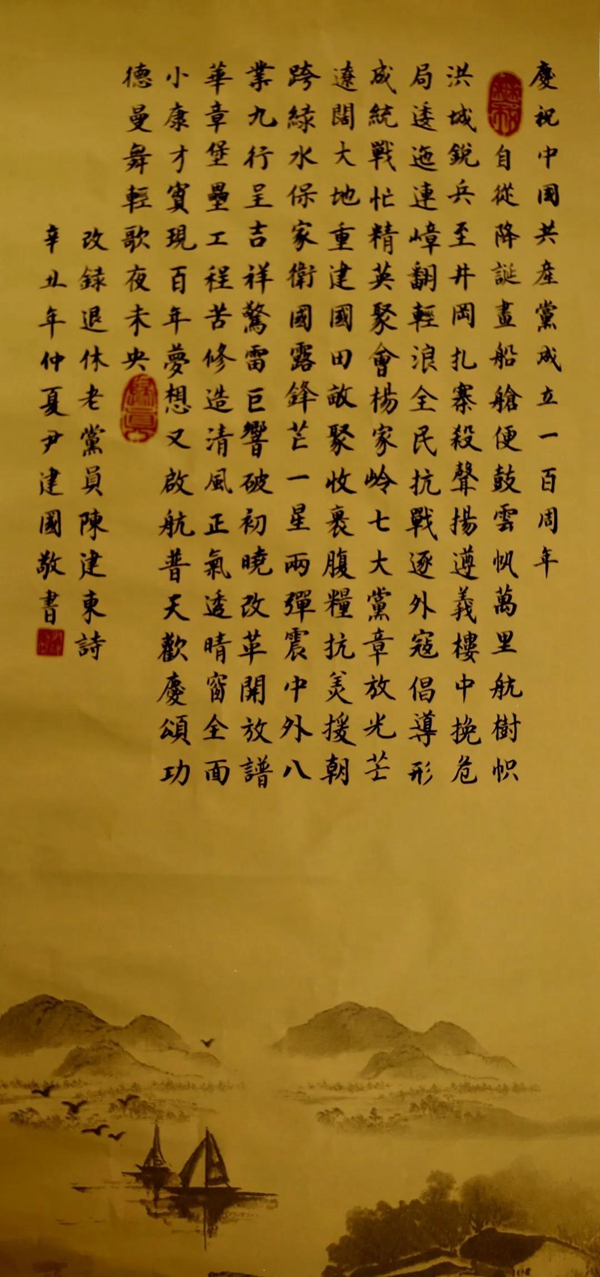 慶祝中国共産黨成立一百周年
自從降誕畫船艙便鼓雲帆萬里航樹幟
洪城銳兵至井岡扎寨殺聲揚遵義樓中挽危
局逶迤連嶂翻輕浪全民抗戰逐外寇倡導形
成統戰忙精英聚會楊家岭七大黨章放光芒
遼闊大地重建國田畝聚收裹腹糧抗美援朝
跨綠水保家衛國露鋒芒一星兩彈震中外八
業九行呈吉祥驚雷巨響破初曉改革開放譜
華章堡壘工程苦修造清風正氣透晴窗全面
小康才實現百年夢想又啟航普天歡慶頌功
德曼舞輕歌夜未央
改錄退休老黨員陳建東詩
辛丑年仲夏尹建國敬書